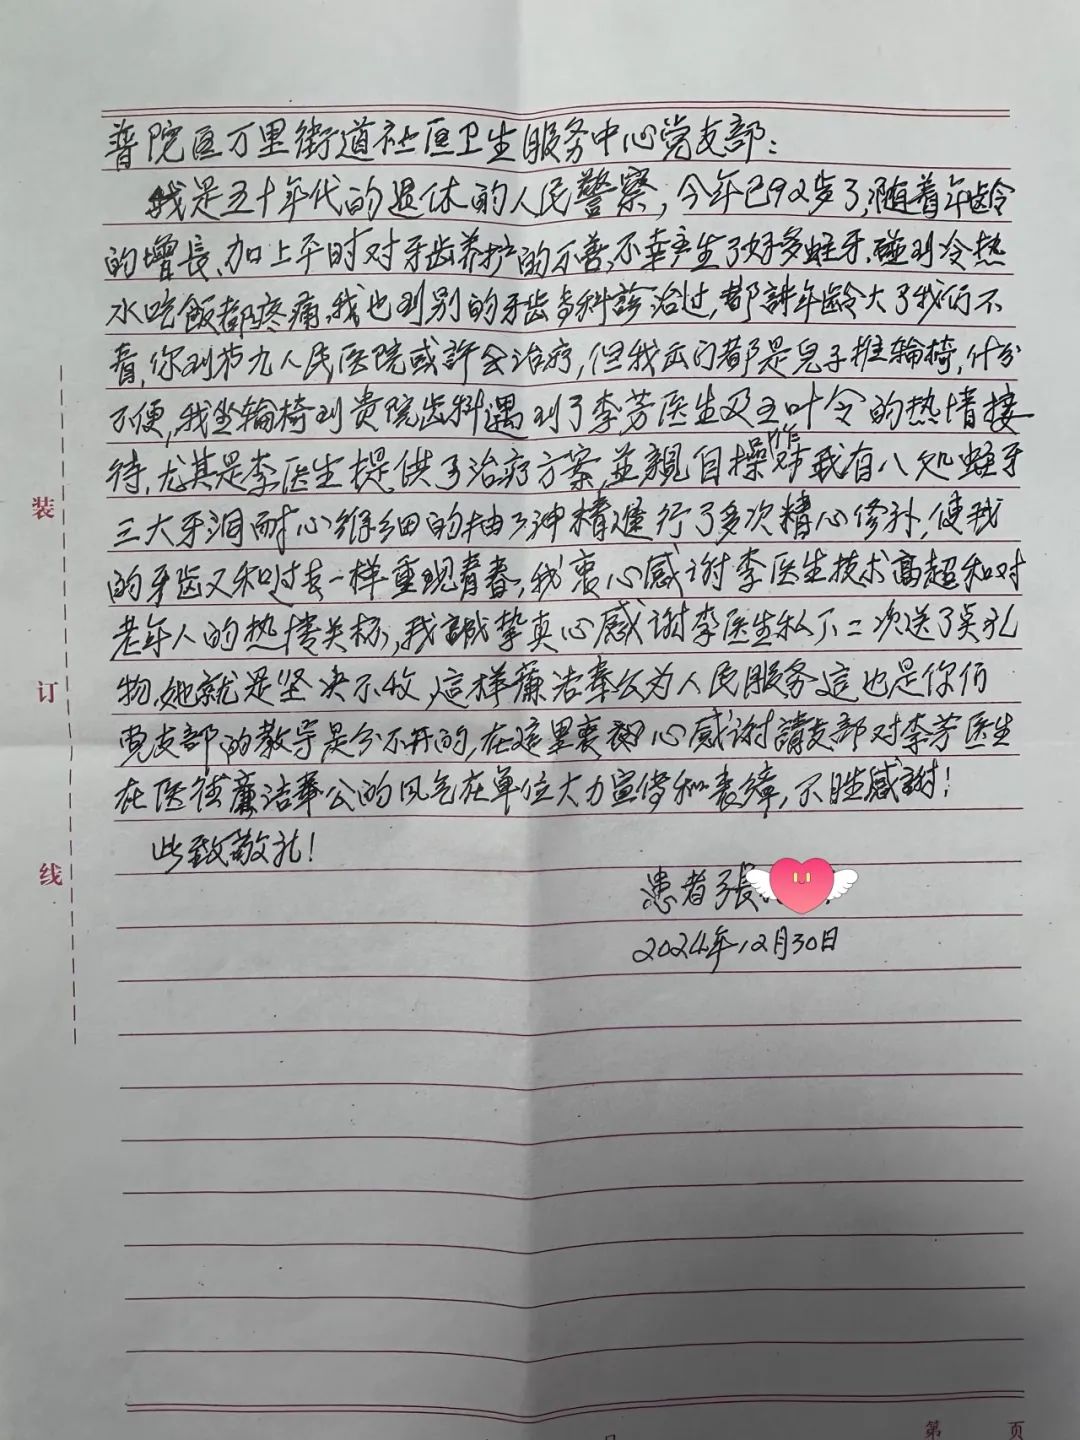 普陀区万里街道社区卫生服务中心党支部：
我是五十年代的退休的人民警察，今年已92岁了，随着年龄
的增長、加上平时对牙齿养护的不善，不幸产生了好多蛀牙，碰到冷热
水吃飯都疼痛，我也到别的牙齿专科診治过，都講年龄大了我们不
看，你到第九人民医院或許会治疗，但我出门都是兒子推輪椅，什分
不便，我坐輪椅到贵院齿科遇到了李芳医生及王叶令的热情接
待，尤其是李医生提供了治疗方案，並親自操作对我有八処蛀牙
三大牙洞耐心细細的抽了神精進行了多次精心修补，使我
的牙齿又和过去一样重现青春，我衷心感谢李医生技术高超和对
老年人的热情关杯，我誠挚真心感谢李医生私下二次送了吴礼
物，她就是坚决不收，這样廉洁奉公为人民服务這也是你们
党支部的教导是分不开的，在這里衷心感谢請支部对李芳医生
在医德廉洁奉公的风气在单位大力宣传和表彰，不胜感謝！
此致敬礼！
患者張
2024年12月30日
装
订
线
第 页